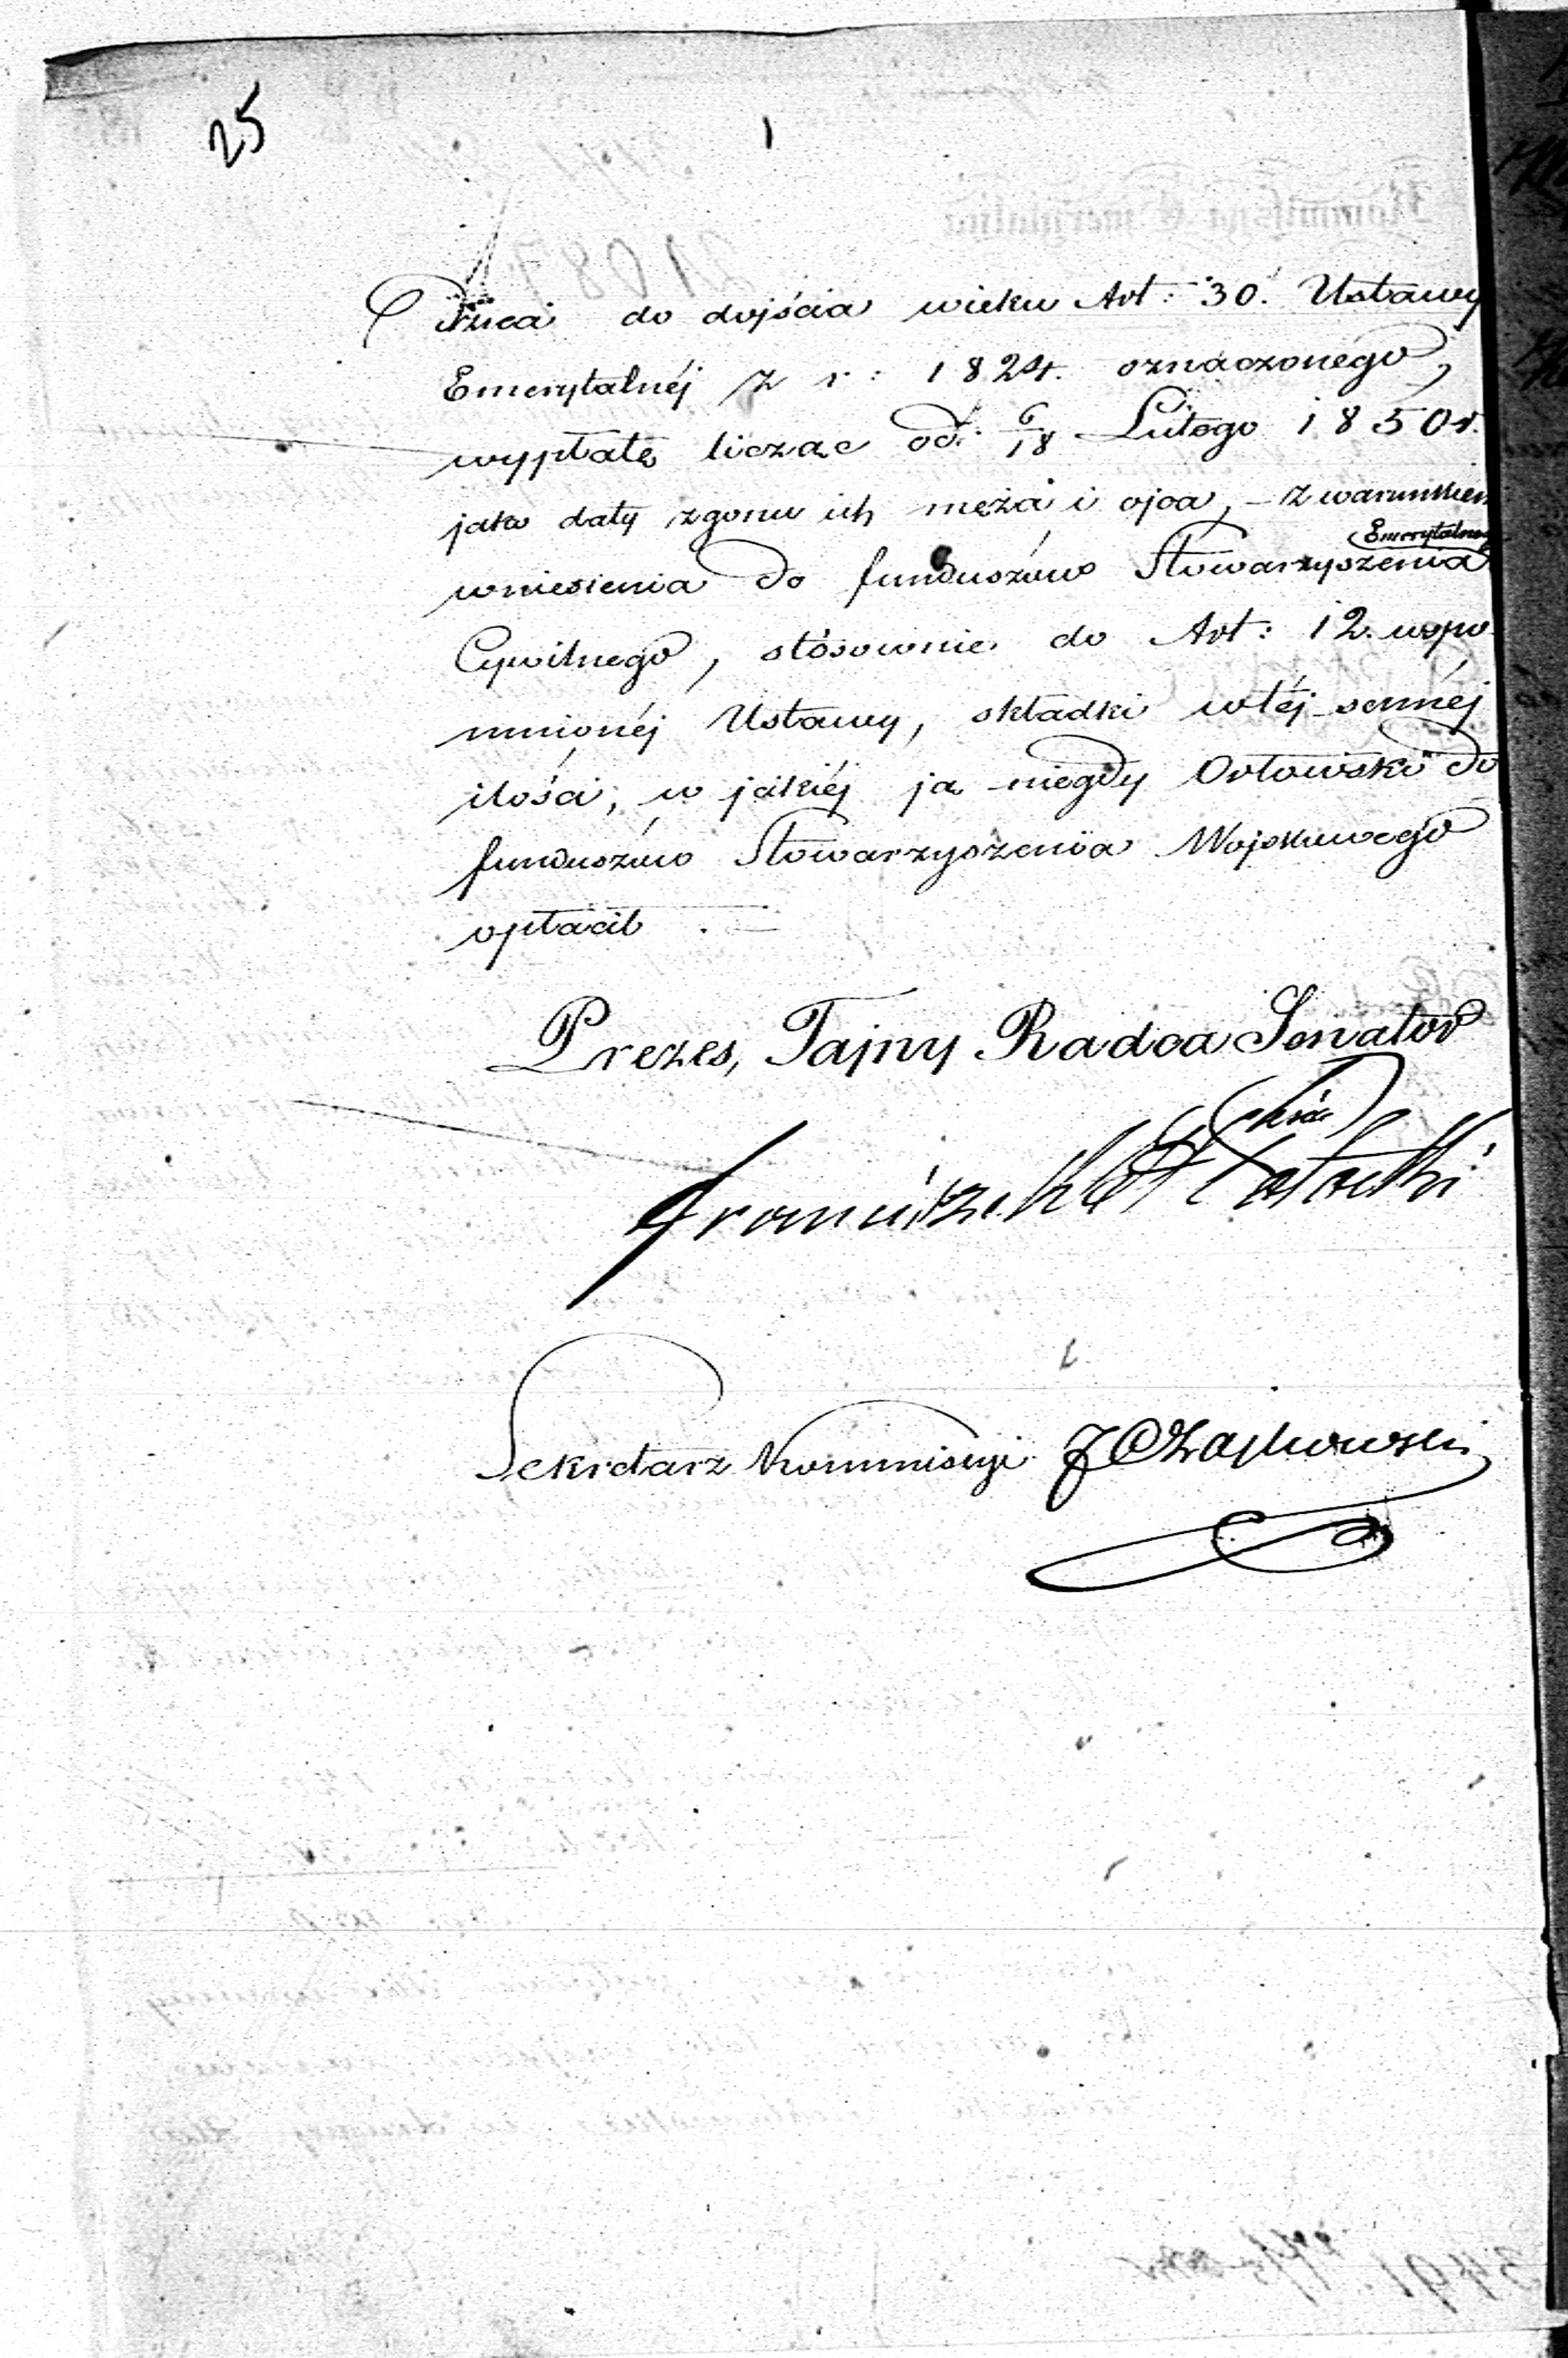 25
do dojścia wieku Art: 30. Ustawy
Emerytalnéj z r: 1824. oznaczonego,
wypłatę licząc od 6/18 Lutego 1850 r.
jako daty zgonu ich męża i ojca, – z warunkiem
wniesienia do funduszów Stowarzyszenia Emerytalnego
Cywilnego, stósownie do Art: 12. wspo
mnionéj Ustawy, składki w téj saméj
ilości, w jakiéj ją niegdy Orłowski do
funduszów Stowarzyszenia Wojskowego
opłacił.
Prezes, Tajny Radca Senator
Franciszek Potocki
Sekretarz Kommissyi J Czajkowski